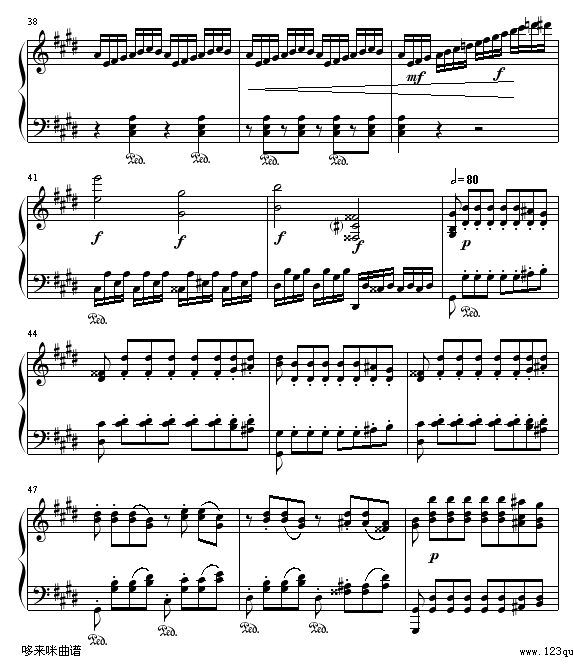 38
mf
f
Ped.
Ped.
Ped.
Ped.
41
= 80
f
f
f
f
p
Ped.
Ped.
44
47
p
Ped.
Ped.
Ped.
Ped.
哆来咪曲谱
www.123qu